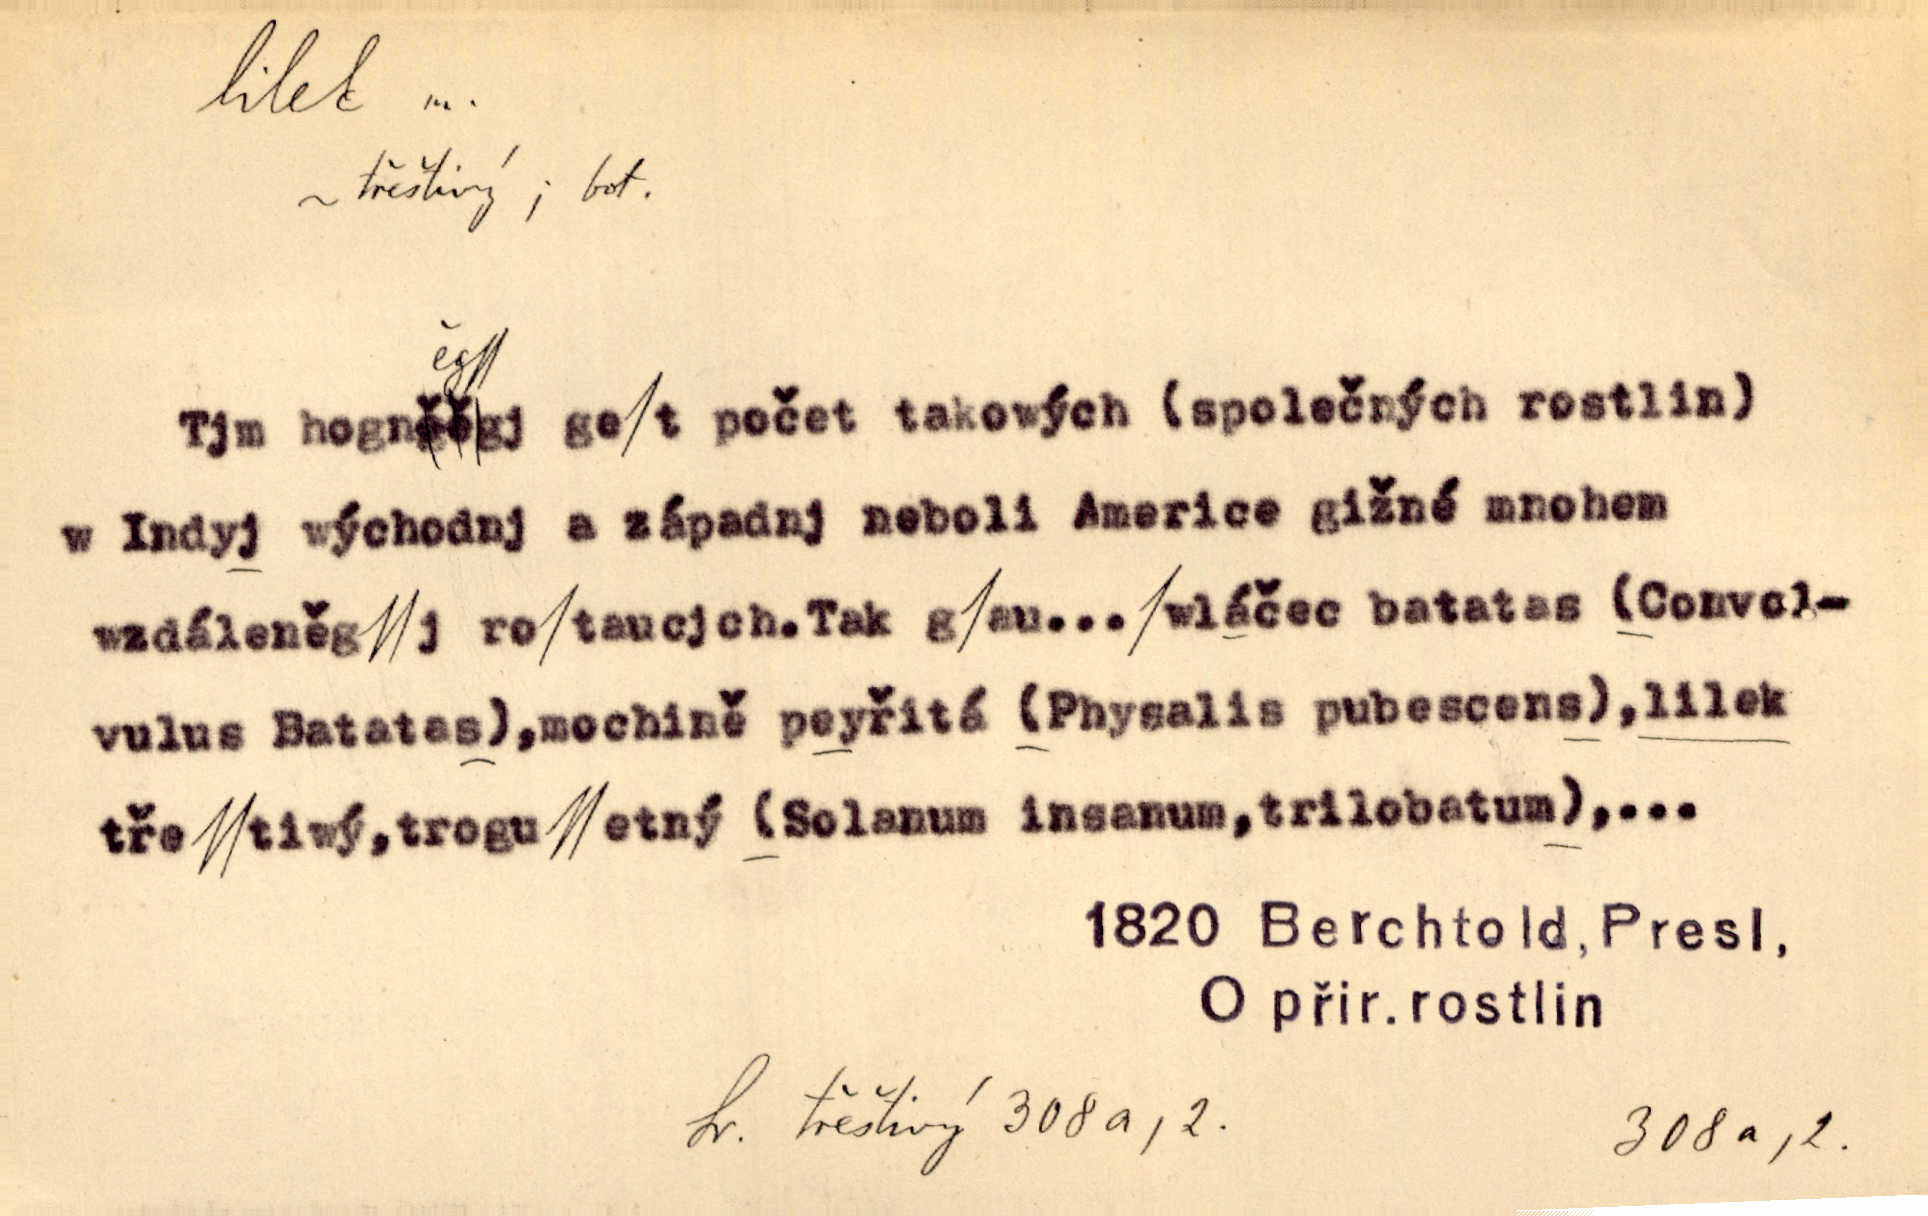 lilek m.
~ třeštivý ; bot.
ěgſſ
Tjm hogněgſſj geſt počet takowých (společných rostlin)
w Indyj východnj a západnj neboli Americe gižné mnohem
wzdáleněgſſj roſtaucjch.Tak gſau...ſwláčec batatas (Convol-
vulus Batatas),mochině peyřitá (Physalis pubescens),lilek
třeſſtiwý,troguſſetný (Solanum insanum,trilobatum),...
1820 Berchtold, Presl,
O přir. rostlin
Sr. třeštivý 308a, 2.
308a, 2.